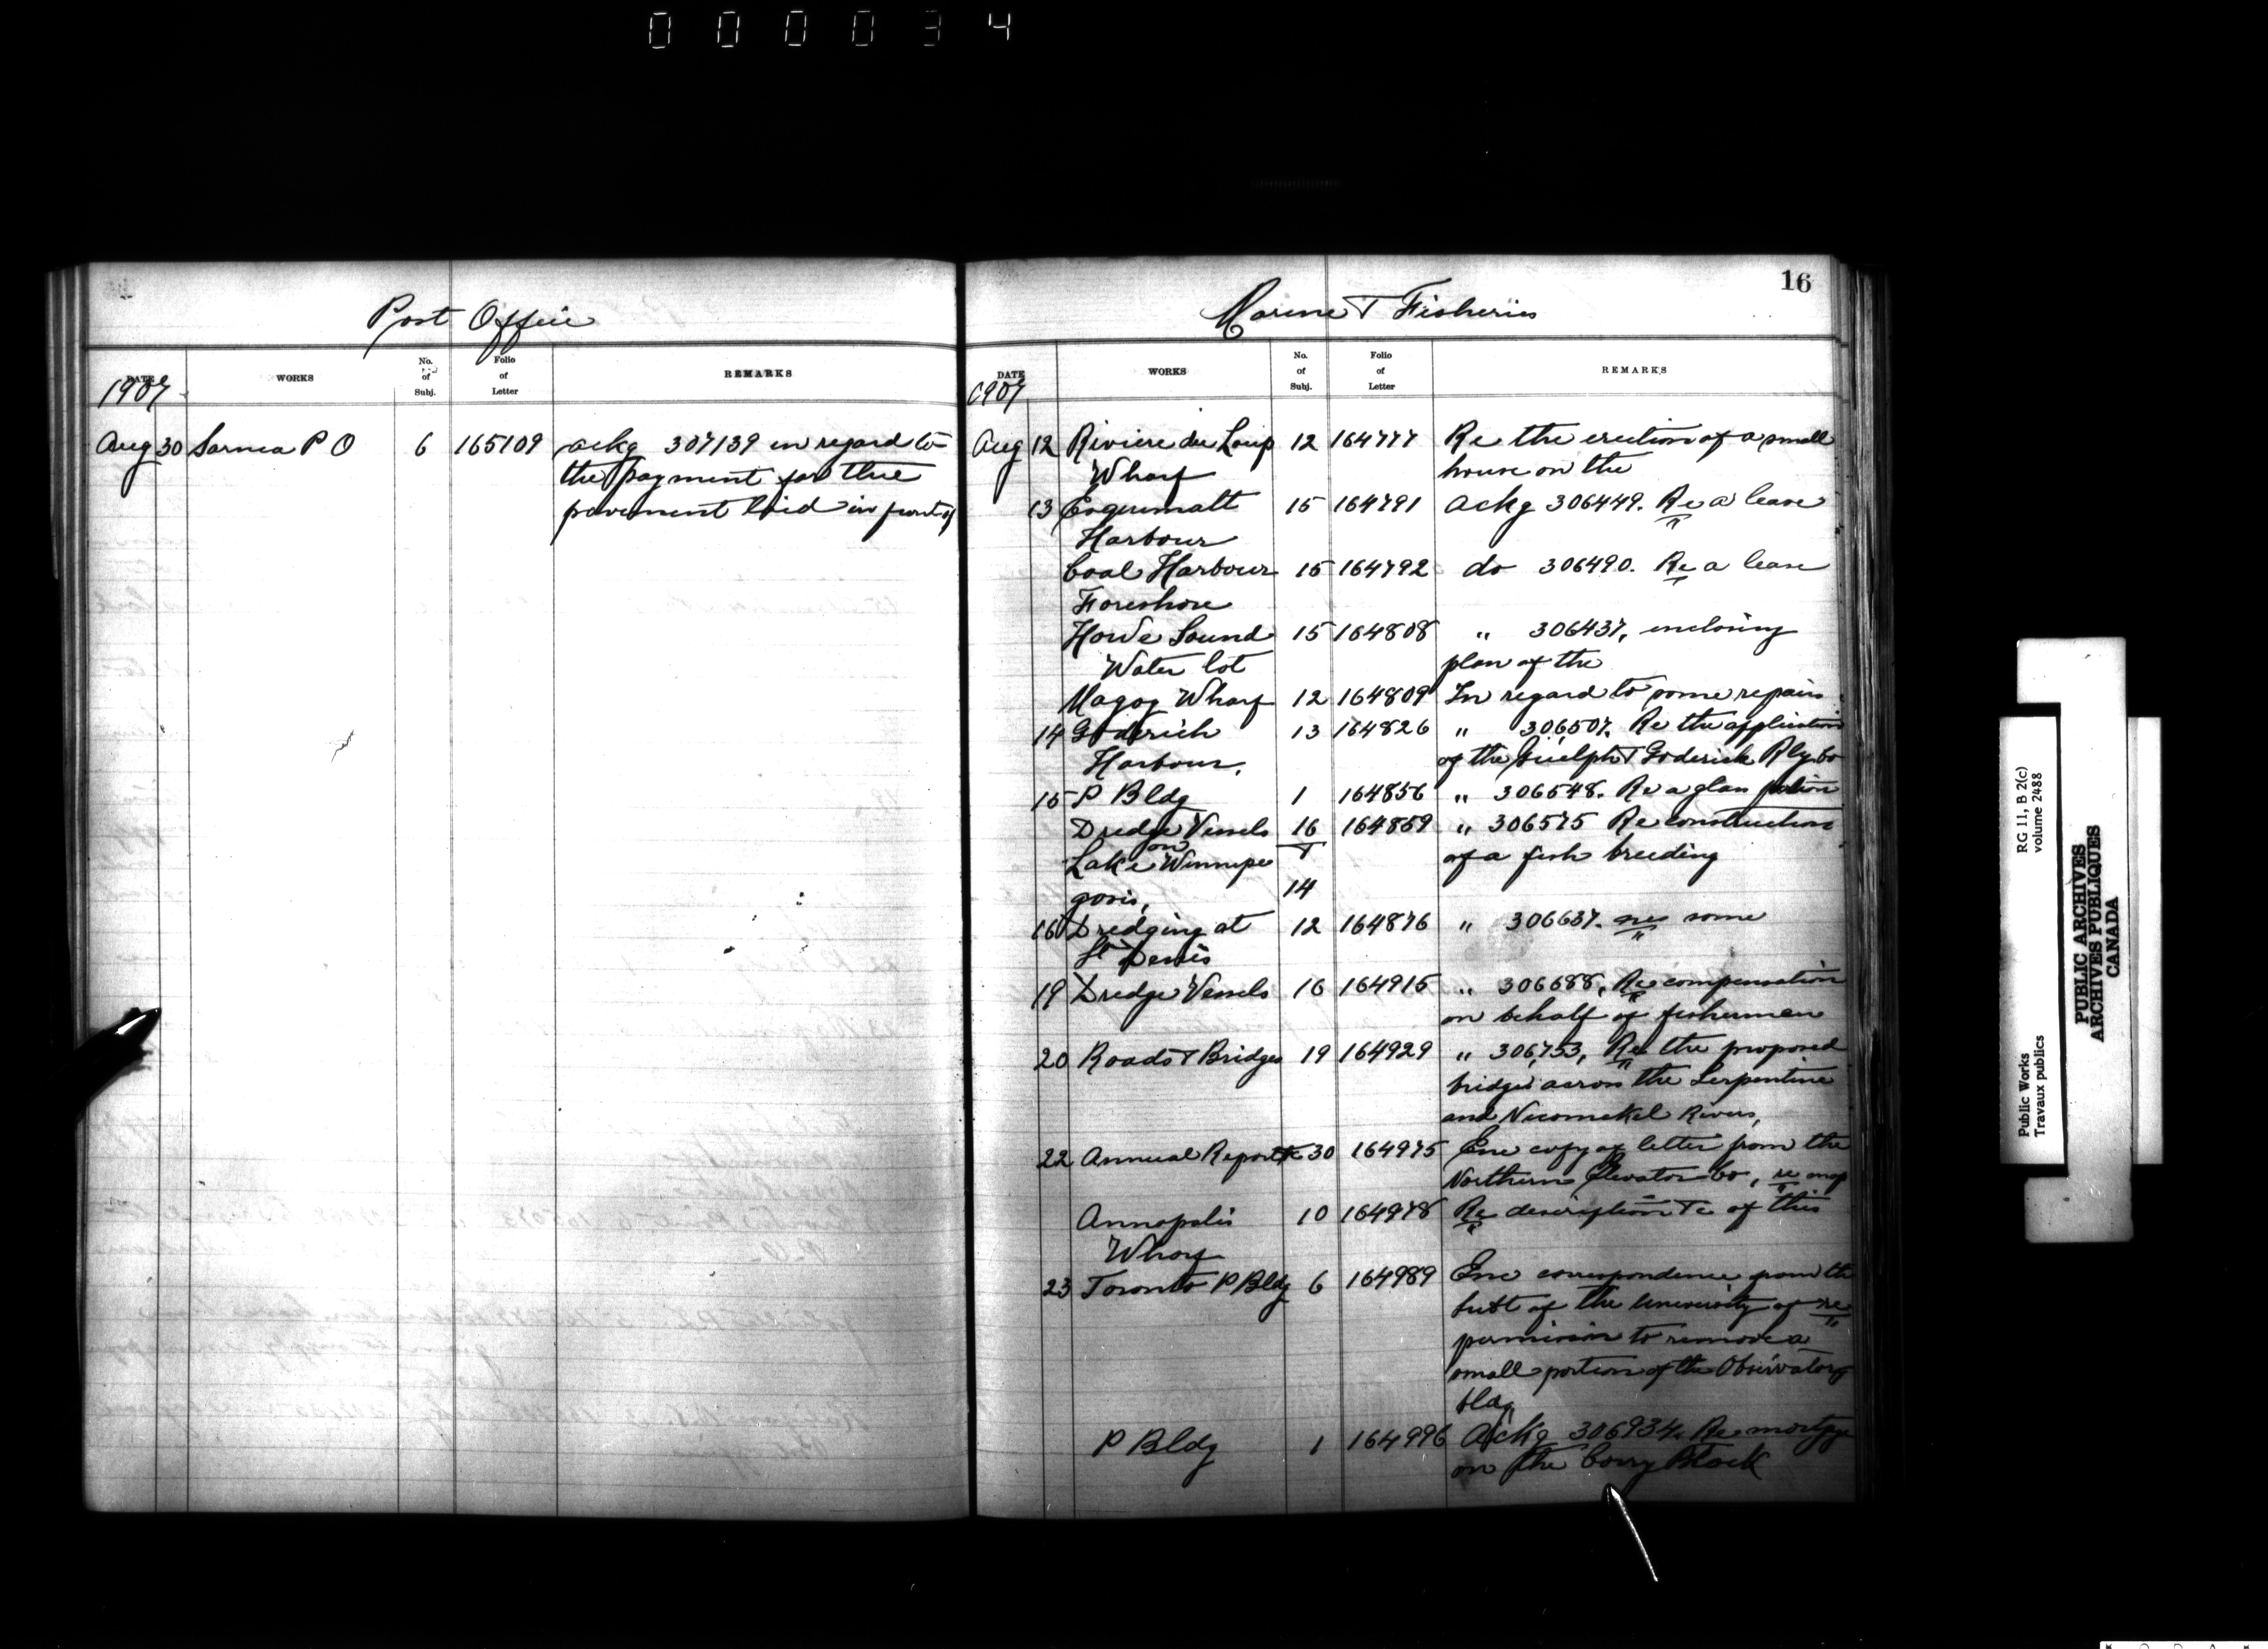 000034
Post Office
DATE WORKS No. of Subj. Folio of Letter REMARKS
1907
Aug 30 Sarnia P O 6 165109 ackg 307139 in regard to
the payment for the
pavement laid in front of
16
Marine & Fisheries
DATE WORKS No. of Subj. Folio of Letter REMARKS
1907
Aug 12 Riviere du Loup 12 164777 Re the erection of a small
Wharf house on the
13 Esquimalt 15 164791 Ackg 306449. Re a lease
Harbour
Coal Harbour 15 164792 do 306490. Re a lease
Foreshore
Howe Sound 15 164808 " 306437, enclosing
Water lot plan of the
Magog Wharf 12 164809 In regard to some repairs
14 Goderich 13 164826 " 306507. Re the application
Harbour. of the Guelph & Goderich Rly Co
15 P Bldg 1 164856 " 306548. Re a glass
Dredge Vessels 16 164859 " 306575 Re construction
on & of a fish breeding
Lake Winnipe
gosis, 14
16 Dredging at 12 164876 " 306637. re some
St Denis
19 Dredge Vessels 16 164915 " 306688, Re compensation
on behalf of fishermen
20 Roads & Bridges 19 164929 " 306,753, Re the proposed
bridges across the Serpentine
and Nicomekel Rivers,
22 Annual Report 30 164975 Enc copy of letter from the
Northern Elevator Co, re map
Annapolis 10 164978 Re description &c of this
Wharf
23 Toronto P Bldg 6 164989 Enc correspondence from the
Supt of the University of re
permission to remove a
small portion of the Observatory
bldg
P Bldg 1 164996 Ackg 306934. Re mortge
on the Corry Block
Public Works
Travaux publics
RG 11, B 2(c)
volume 2488
PUBLIC ARCHIVES
ARCHIVES PUBLIQUES
CANADA